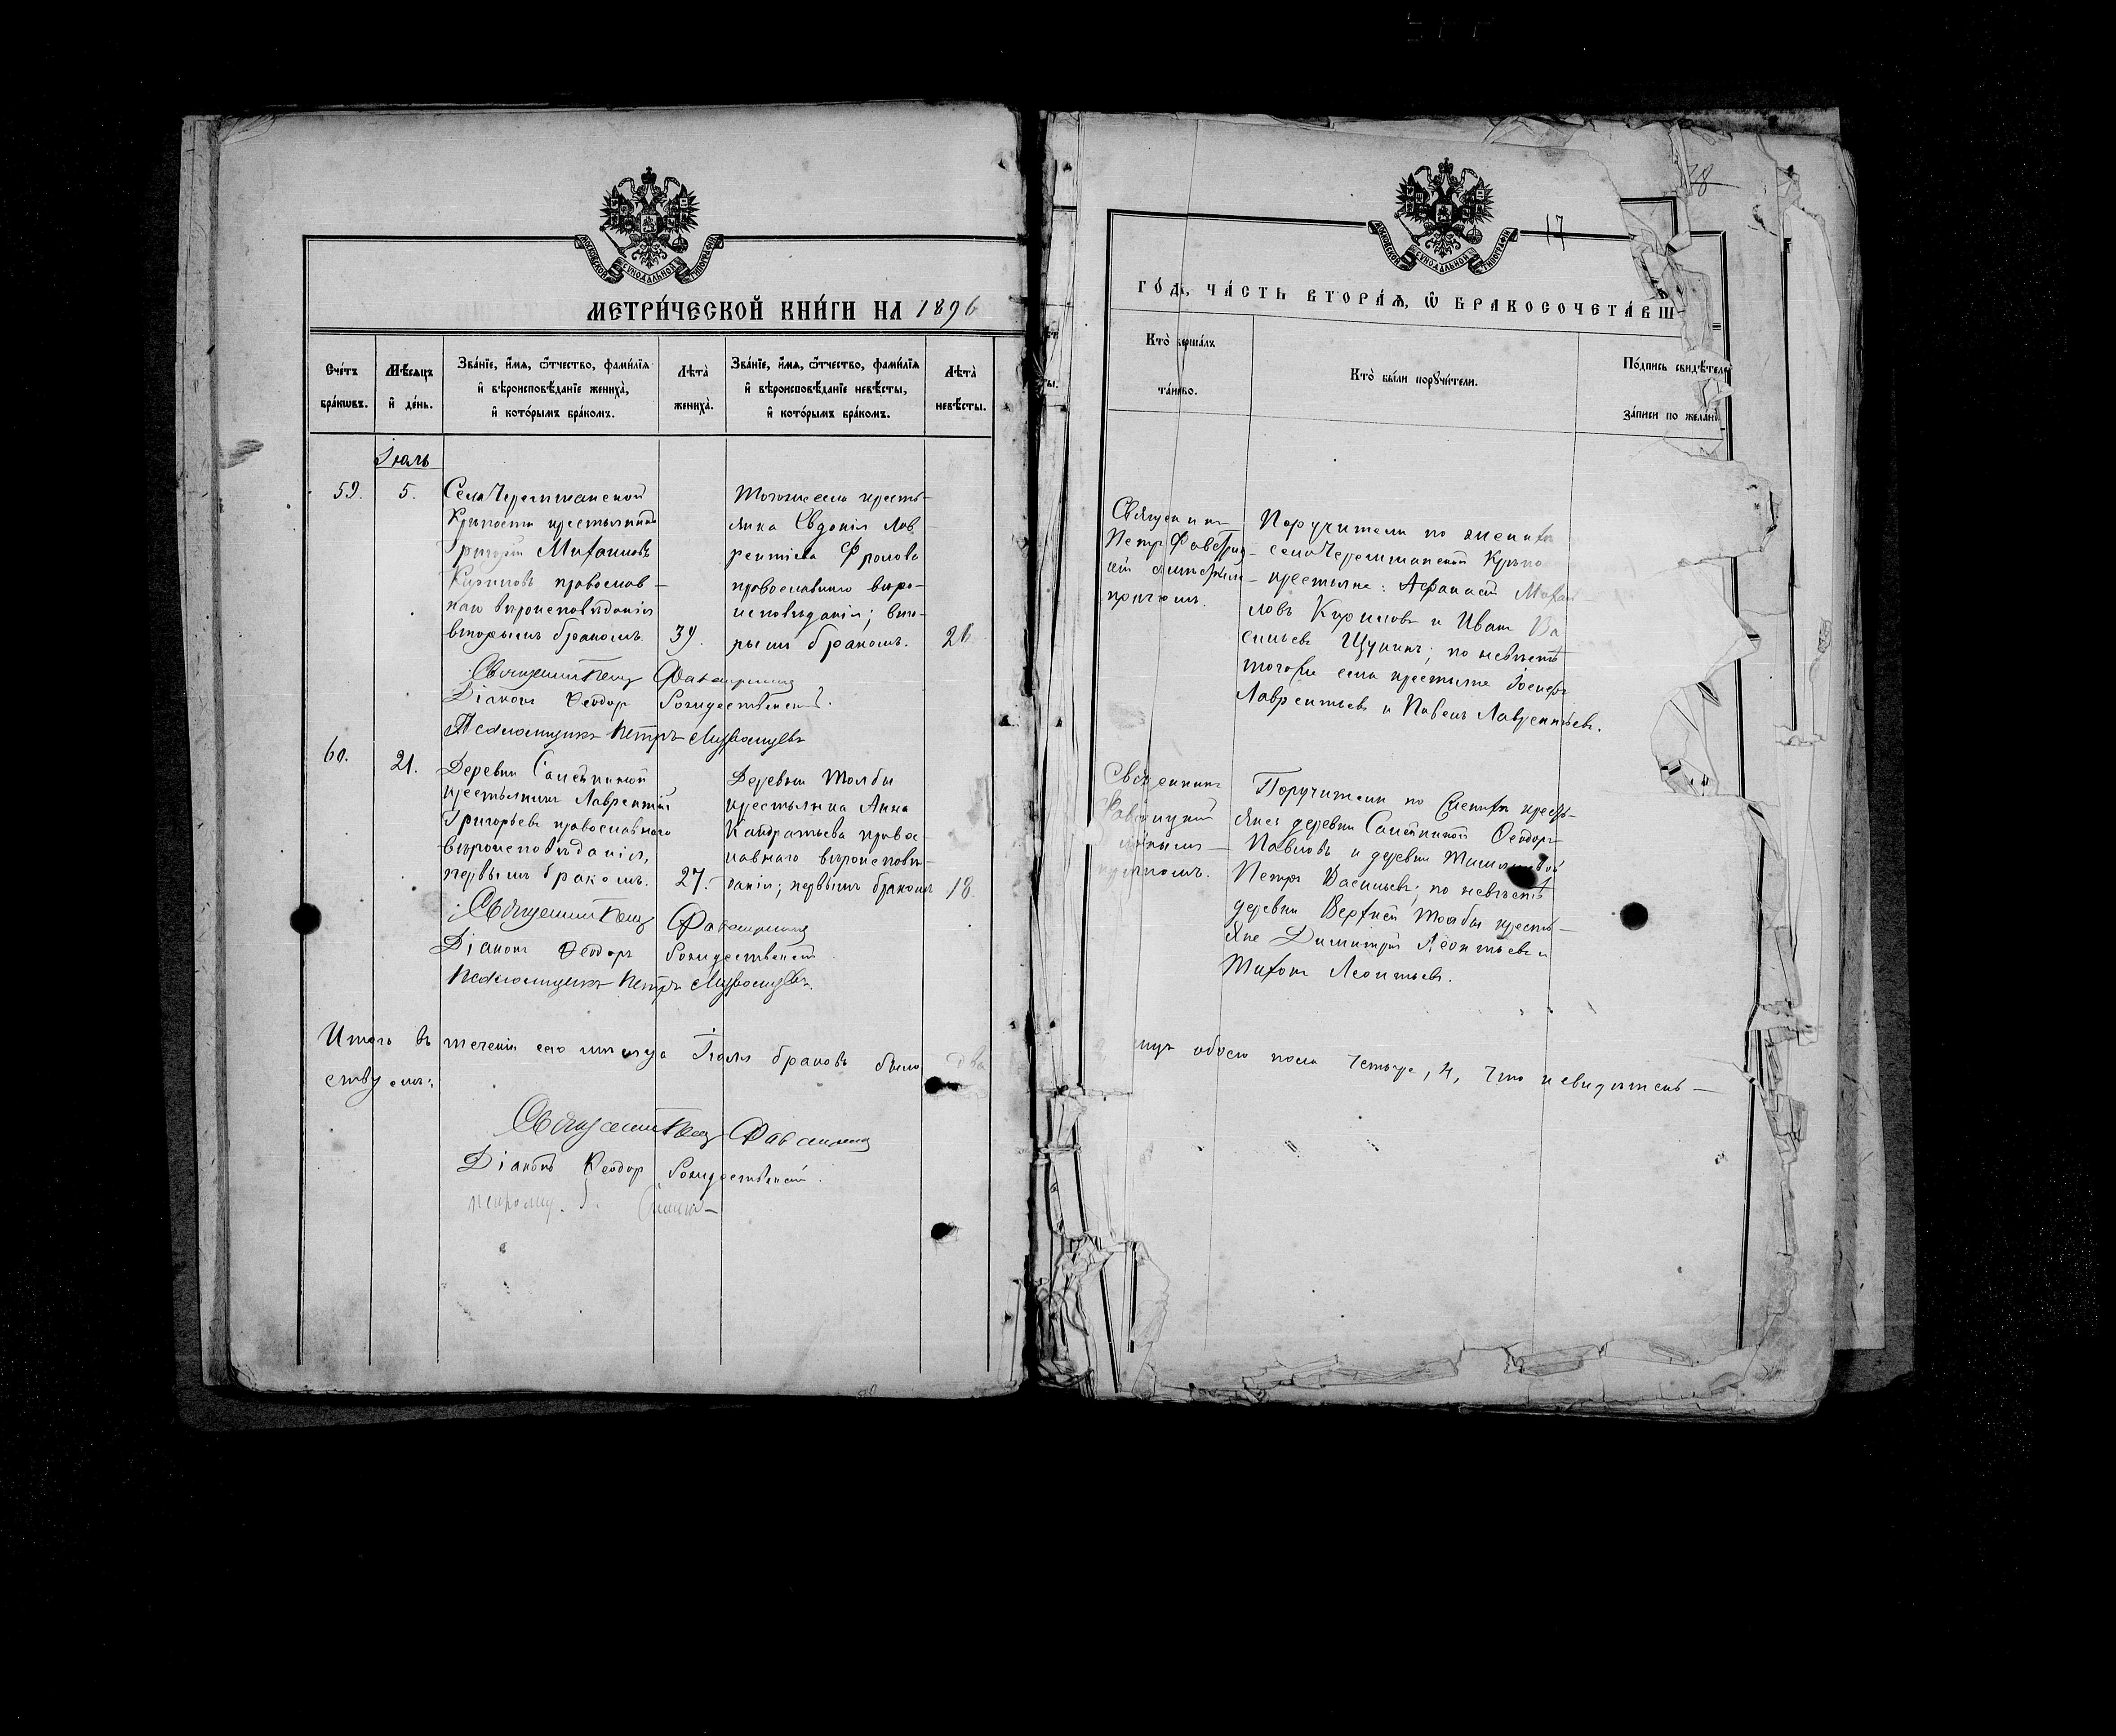 МОСКОВСКОЙ СУНОДАЛЬНОЙ ТИПОГРАФІИ
МЕТРИ́ЧЕСКОЙ КНИ́ГИ НА 1896
Сче́тъ бра́кωвъ.
Мѣ́сѧцъ и҆ де́нь.
Зва́нїе, и҆́мѧ, ѻ҆́тчество, фами́лїѧ
и҆ вѣроисповѣ́данїе жениха̀,
и҆ кото́рымъ бра́комъ.
Лѣта̀ жениха̀.
Зва́нїе, и҆́мѧ, ѻ҆́тчество, фами́лїѧ
и҆ вѣроисповѣ́данїе невѣ́сты,
и҆ кото́рымъ бра́комъ.
Лѣта̀ невѣ́сты.
Іюль
59.
5.
Села Черемшанской
Крѣпости крестьянинъ
Григорій Михаиловъ
Кириловъ православ-
наго вѣроисповѣданія
вторымъ бракомъ.
39.
Тогоже села кресть-
янка Евдокія Лав-
рентіева Фролова
православнаго вѣро-
исповѣданія; вто-
рымъ бракомъ.
Священникъ Петръ
Діаконъ Ѳеодоръ Рождественскій.
Псаломщикъ Петръ
60.
21.
Деревни
крестьянинъ Лаврентій
Григорьевъ православнаго
вѣроисповѣданія,
первымъ бракомъ.
27.
Деревни Толбы
крестьянка Анна
Кандратьева правос-
лавнаго вѣроисповѣ-
данія; первымъ бракомъ
18.
Священникъ Петръ
Діаконъ Ѳеодоръ Рождественскій
Псаломщикъ Петръ
Итого въ теченіи сего мѣсяца Іюля браковъ было два
ствуемъ:
Священникъ Петръ
Діаконъ Ѳеодоръ Рождественскій.
38
17
МОСКОВСКОЙ СУНОДАЛЬНОЙ ТИПОГРАФІИ
ГО́ДЪ, ЧА́СТЬ ВТОРА́Ѧ, Ѽ БРАКОСОЧЕТА́ВШ
Кто̀ верша́лъ та́инство.
Кто̀ бы́ли порꙋчи́тели.
По́дпись свидѣ́теле
за́писи по жела́нї
Священникъ
Петръ
причтомъ.
Поручители по женихѣ
села Черемшанской Крѣпо
крестьяне: Афанасій Михаи
ловъ Кириловъ и Иванъ Ва
сильевъ Щукинъ; по невѣстѣ
тогоже села крестьяне Іосифъ
Лаврентьевъ и Павелъ Лаврентьевъ.
Священникъ
причтомъ.
Поручители по женихѣ кресть-
яне: деревни Ѳеодоръ
Павловъ и деревни
Петръ Васильевъ; по невѣстѣ
деревни Верхней Толбы кресть-
яне Димитрій Леонтьевъ и
Тихонъ Леонтьевъ.
лицъ обоего пола четыре, 4, что и свидѣтель-